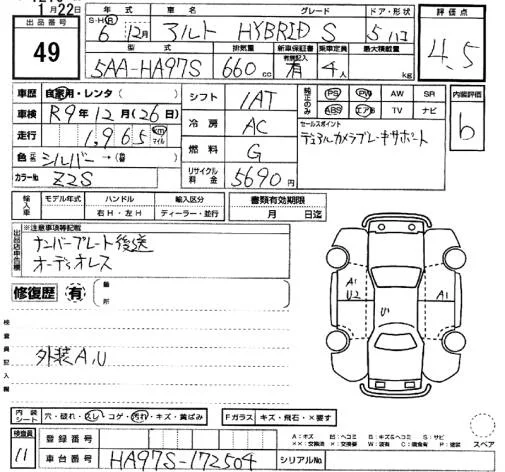 月22日
出品番号
49
年式 車名 グレード ドア・形状 評価点
S・H・R 6年 12月 アルト HYBRID S 5ハコ
型式 排気量 新車保証書 乗車定員 最大積載量
有(継続)記入
5AA-HA97S 660cc 有 4人 kg
4.5
車歴 自家用・レンタ( )
車検 R9年12月(26日)
走行 1,965 km マイル
色 シルバー→(替 )
カラーNo. Z2S
シフト 1AT
冷房 AC
燃料 G
リサイクル料金 5690円
純正のみ PS PW AW SR
ABS エアB TV ナビ
セールスポイント
デュアルカメラブレーキサポート
内装評価
b
輸入車 モデル年式 ハンドル 輸入区分
右H・左H ディーラー・並行
書類有効期限
月 日迄
出品店申告欄
※注意事項等記載
ナンバープレート後送
オーディオレス
修復歴 有 箇所
検査員記入欄
外装A,U
A1
U2
U1
A1
内装シート 穴・破れ・スレ・コゲ・汚れ・キズ・黄ばみ Fガラス キズ・飛石・×要す
検査員
11
登録番号
車台番号 HA97S-172504 シリアルNo.
A:キズ U:ヘコミ B:キズ&ヘコミ S:サビ
XX:交換済 X:要交換 W:波有 C:腐食有 P:塗装
スペア